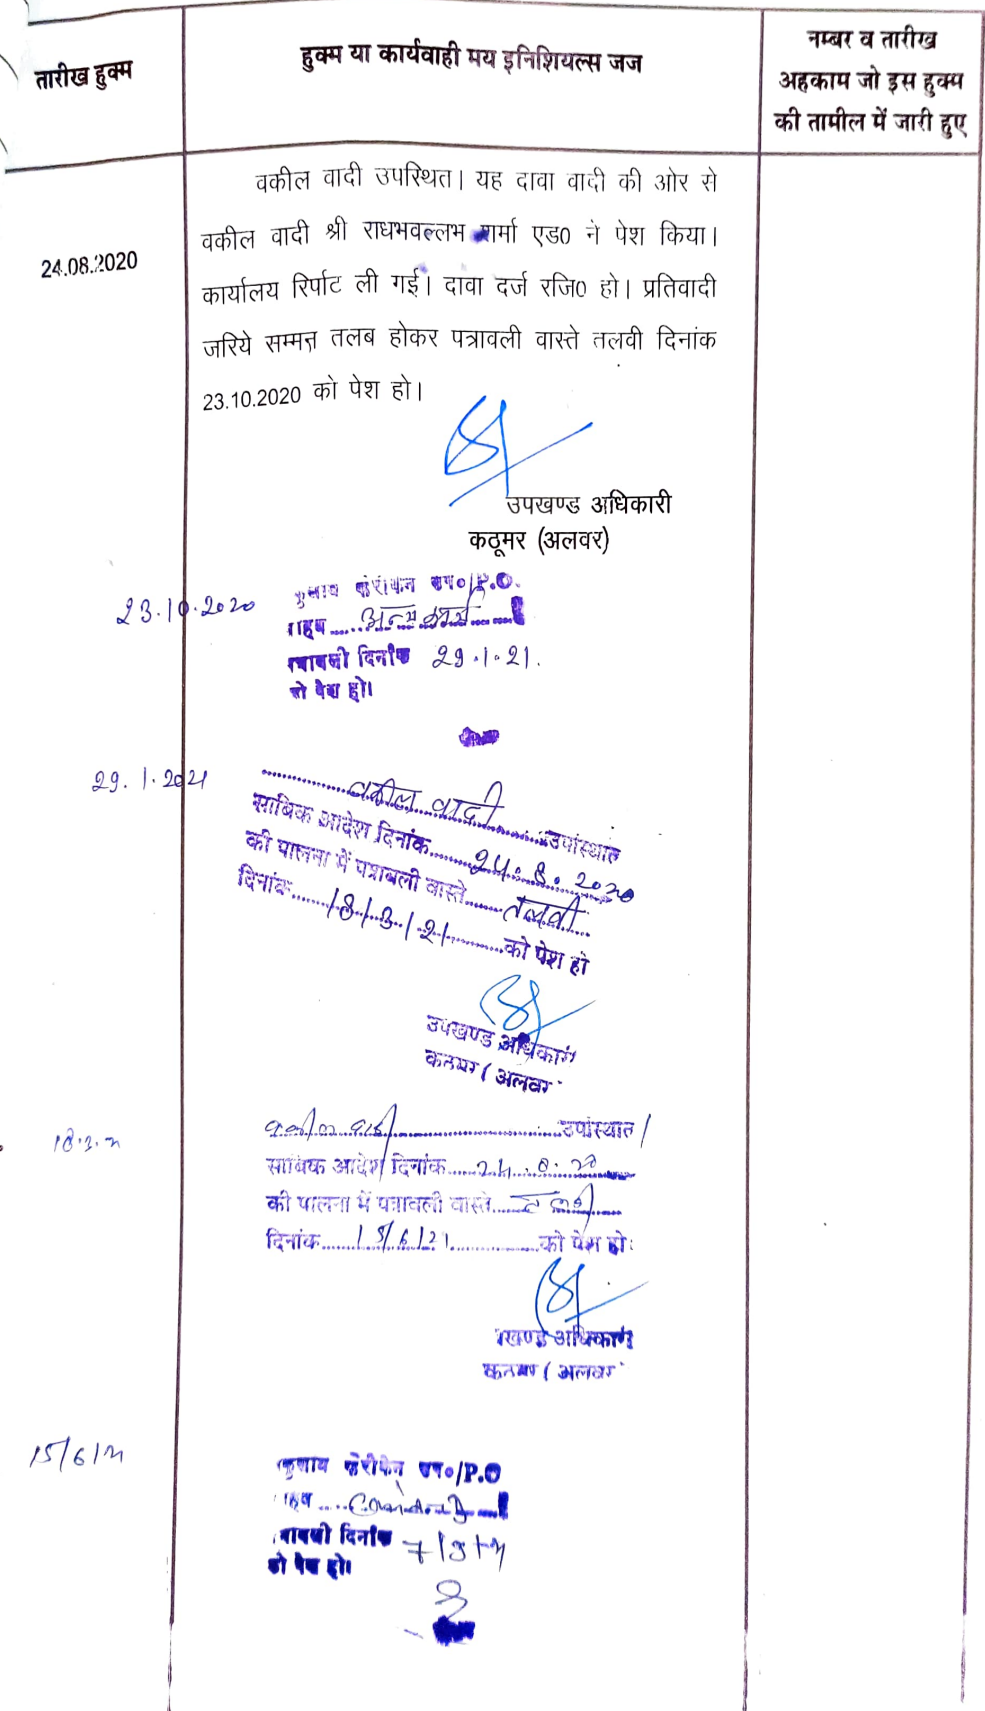 तारीख हुक्म
हुक्म या कार्यवाही मय इनिशियल्स जज
नम्बर व तारीख
अहकाम जो इस हुक्म
की तामील में जारी हुए
24.08.2020
वकील वादी उपस्थित। यह दावा वादी की ओर से
वकील वादी श्री राधभवल्लभ शर्मा एड0 ने पेश किया।
कार्यालय रिर्पाट ली गई। दावा दर्ज रजि0 हो। प्रतिवादी
जरिये सम्मन तलब होकर पत्रावली वास्ते तलवी दिनांक
23.10.2020 को पेश हो।
उपखण्ड अधिकारी
कठूमर (अलवर)
23.10.2020
P.O.
अन्य कार्य
दिनांक 29.1.21.
को पेश हो।
29.1.2021
वकील वादी उपस्थित
साबिक आदेश दिनांक 24.8.2020
की पालना में पत्रावली वास्ते तलवी
दिनांक 18/3/21 को पेश हो
उपखण्ड अधिकारी
अलवर
वकील वादी उपस्थित
साबिक आदेश दिनांक 24.8.20
की पालना में पत्रावली वास्ते तलवी
दिनांक 15/6/21 को पेश हो
अधिकारी
अलवर
15/6/21
/P.O
दिनांक
को पेश हो।